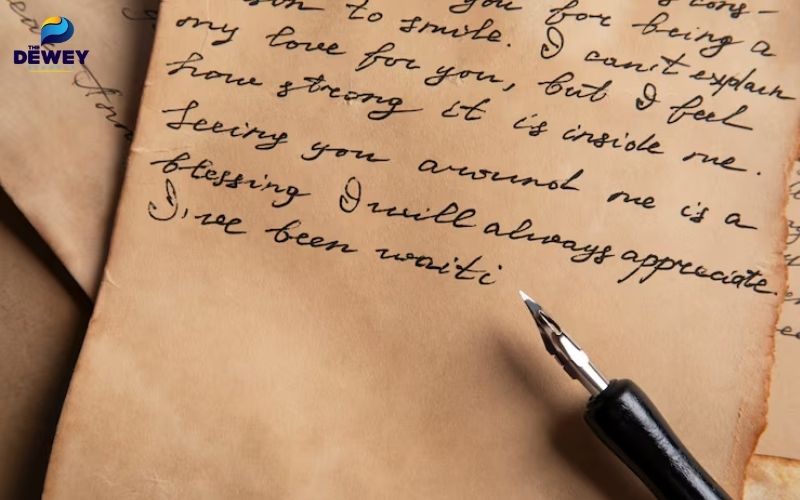 THE
DEWEY
to smile. you for being a
my love for you, but I feel
I can't explain
how strong it is inside me.
Seeing you around me is a
blessing I will always appreciate.
I've been waiti